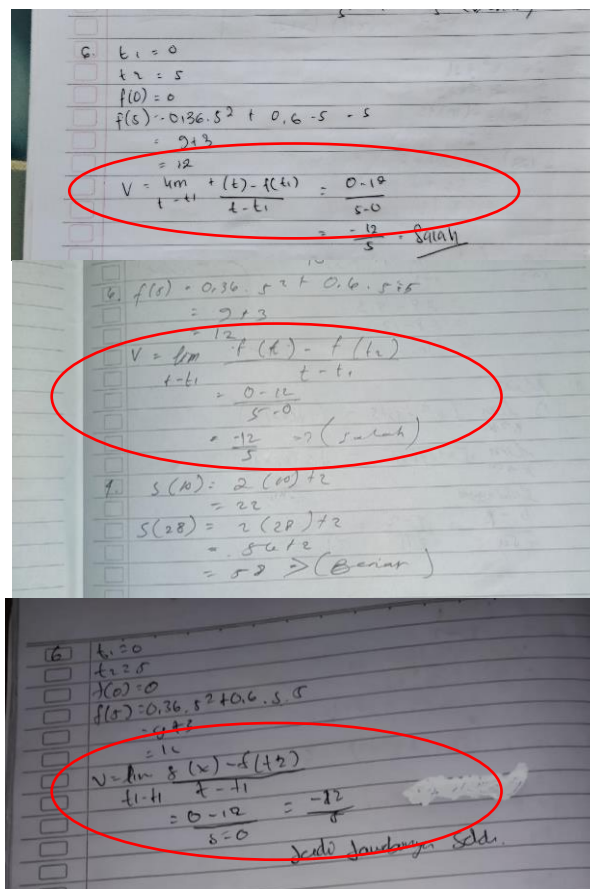 6. t1 = 0
t2 = 5
f(0) = 0
f(5) = 0,36.5² + 0,6 . 5 . 5
= 9+3
= 12
V = lim t-t1 f(t) - f(t1) / t - t1 = 0-12 / 5-0
= -12/5 = Salah
6. f(5) = 0,36 . 5² + 0,6 . 5
= 9+3
= 12
V = lim t-t1 f(t) - f(t2) / t - t1
= 0-12 / 5-0
= -12/5 => (salah)
9. S(10) = 2(10)+2
= 22
S(28) = 2(28)+2
= 56+2
= 58 => (Benar)
6 t1=0
t2=5
f(0)=0
f(5)=0,36.5²+0,6.5.5
=9+3
=12
V = lim t1-t1 f(x) - f(t2) / t - t1
= 0-12 / 5-0 = -12/5
Jadi Jawabannya Salah.